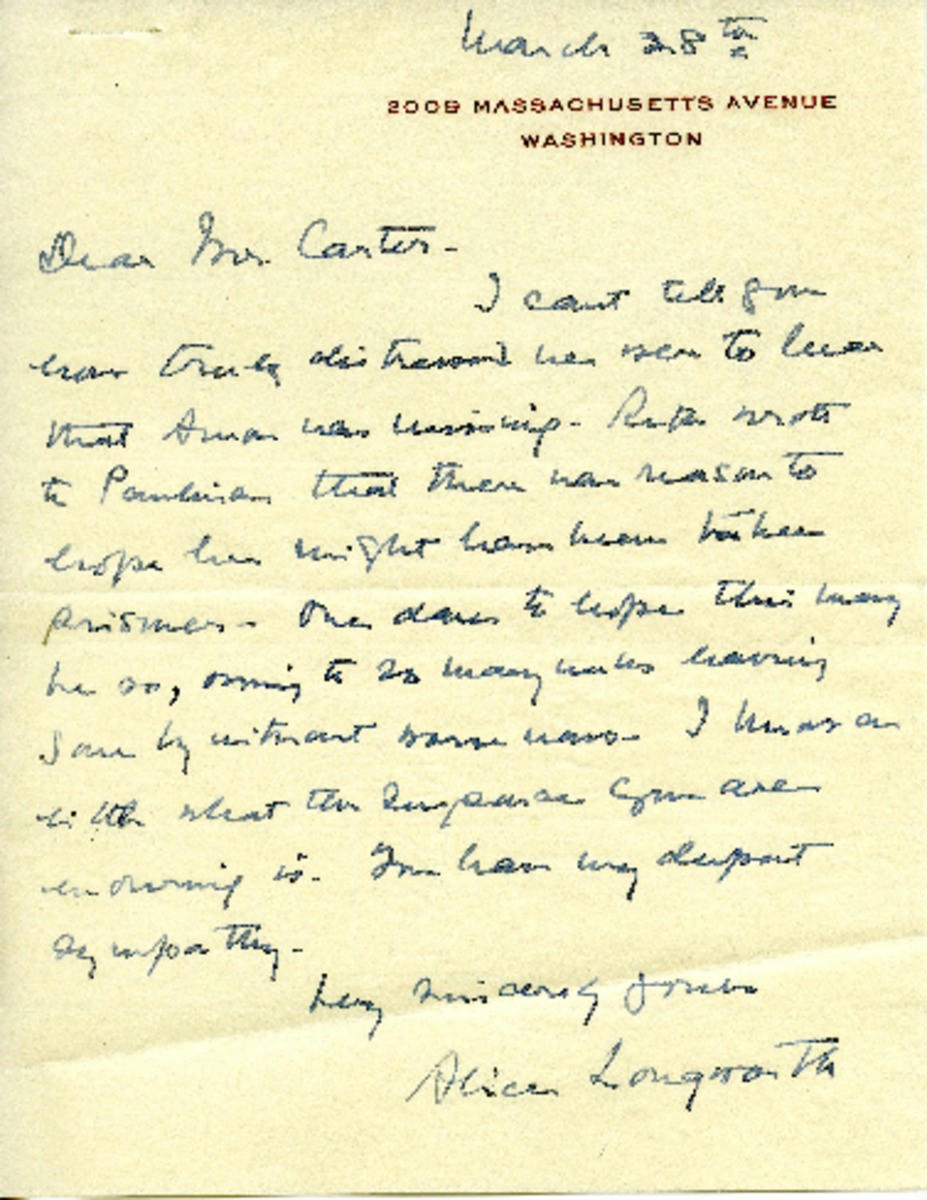 March 28th
2009 MASSACHUSETTS AVENUE
WASHINGTON
Dear Mr. Carter-
I cant tell you
how truly distressed we were to hear
that Amon was missing. Ruth wrote
to Paulina that there was reason to
hope he might have been taken
prisoner- One dares to hope this may
be so, owing to so many weeks having
gone by without worse news. I know a
little what the suspense you are
enduring is. You have my deepest
sympathy-
Very sincerely yours
Alice Longworth